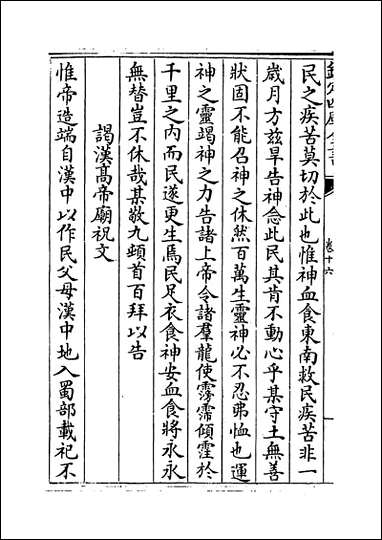 欽定四庫全書
卷十六
民之疾苦莫切於此也惟神血食東南救民疾苦非一
歲月方兹旱告神念此民其肯不動心乎某守土無善
狀固不能召神之休然百萬生靈神必不忍弗恤也運
神之靈竭神之力告諸上帝令諸羣龍使雱霈傾霔於
千里之内而民遂更生焉民足衣食神安血食將永永
無替豈不休哉某敢九頓首百拜以告
謁漢髙帝廟祝文
惟帝造端自漢中以作民父母漢中地入蜀部載祀不